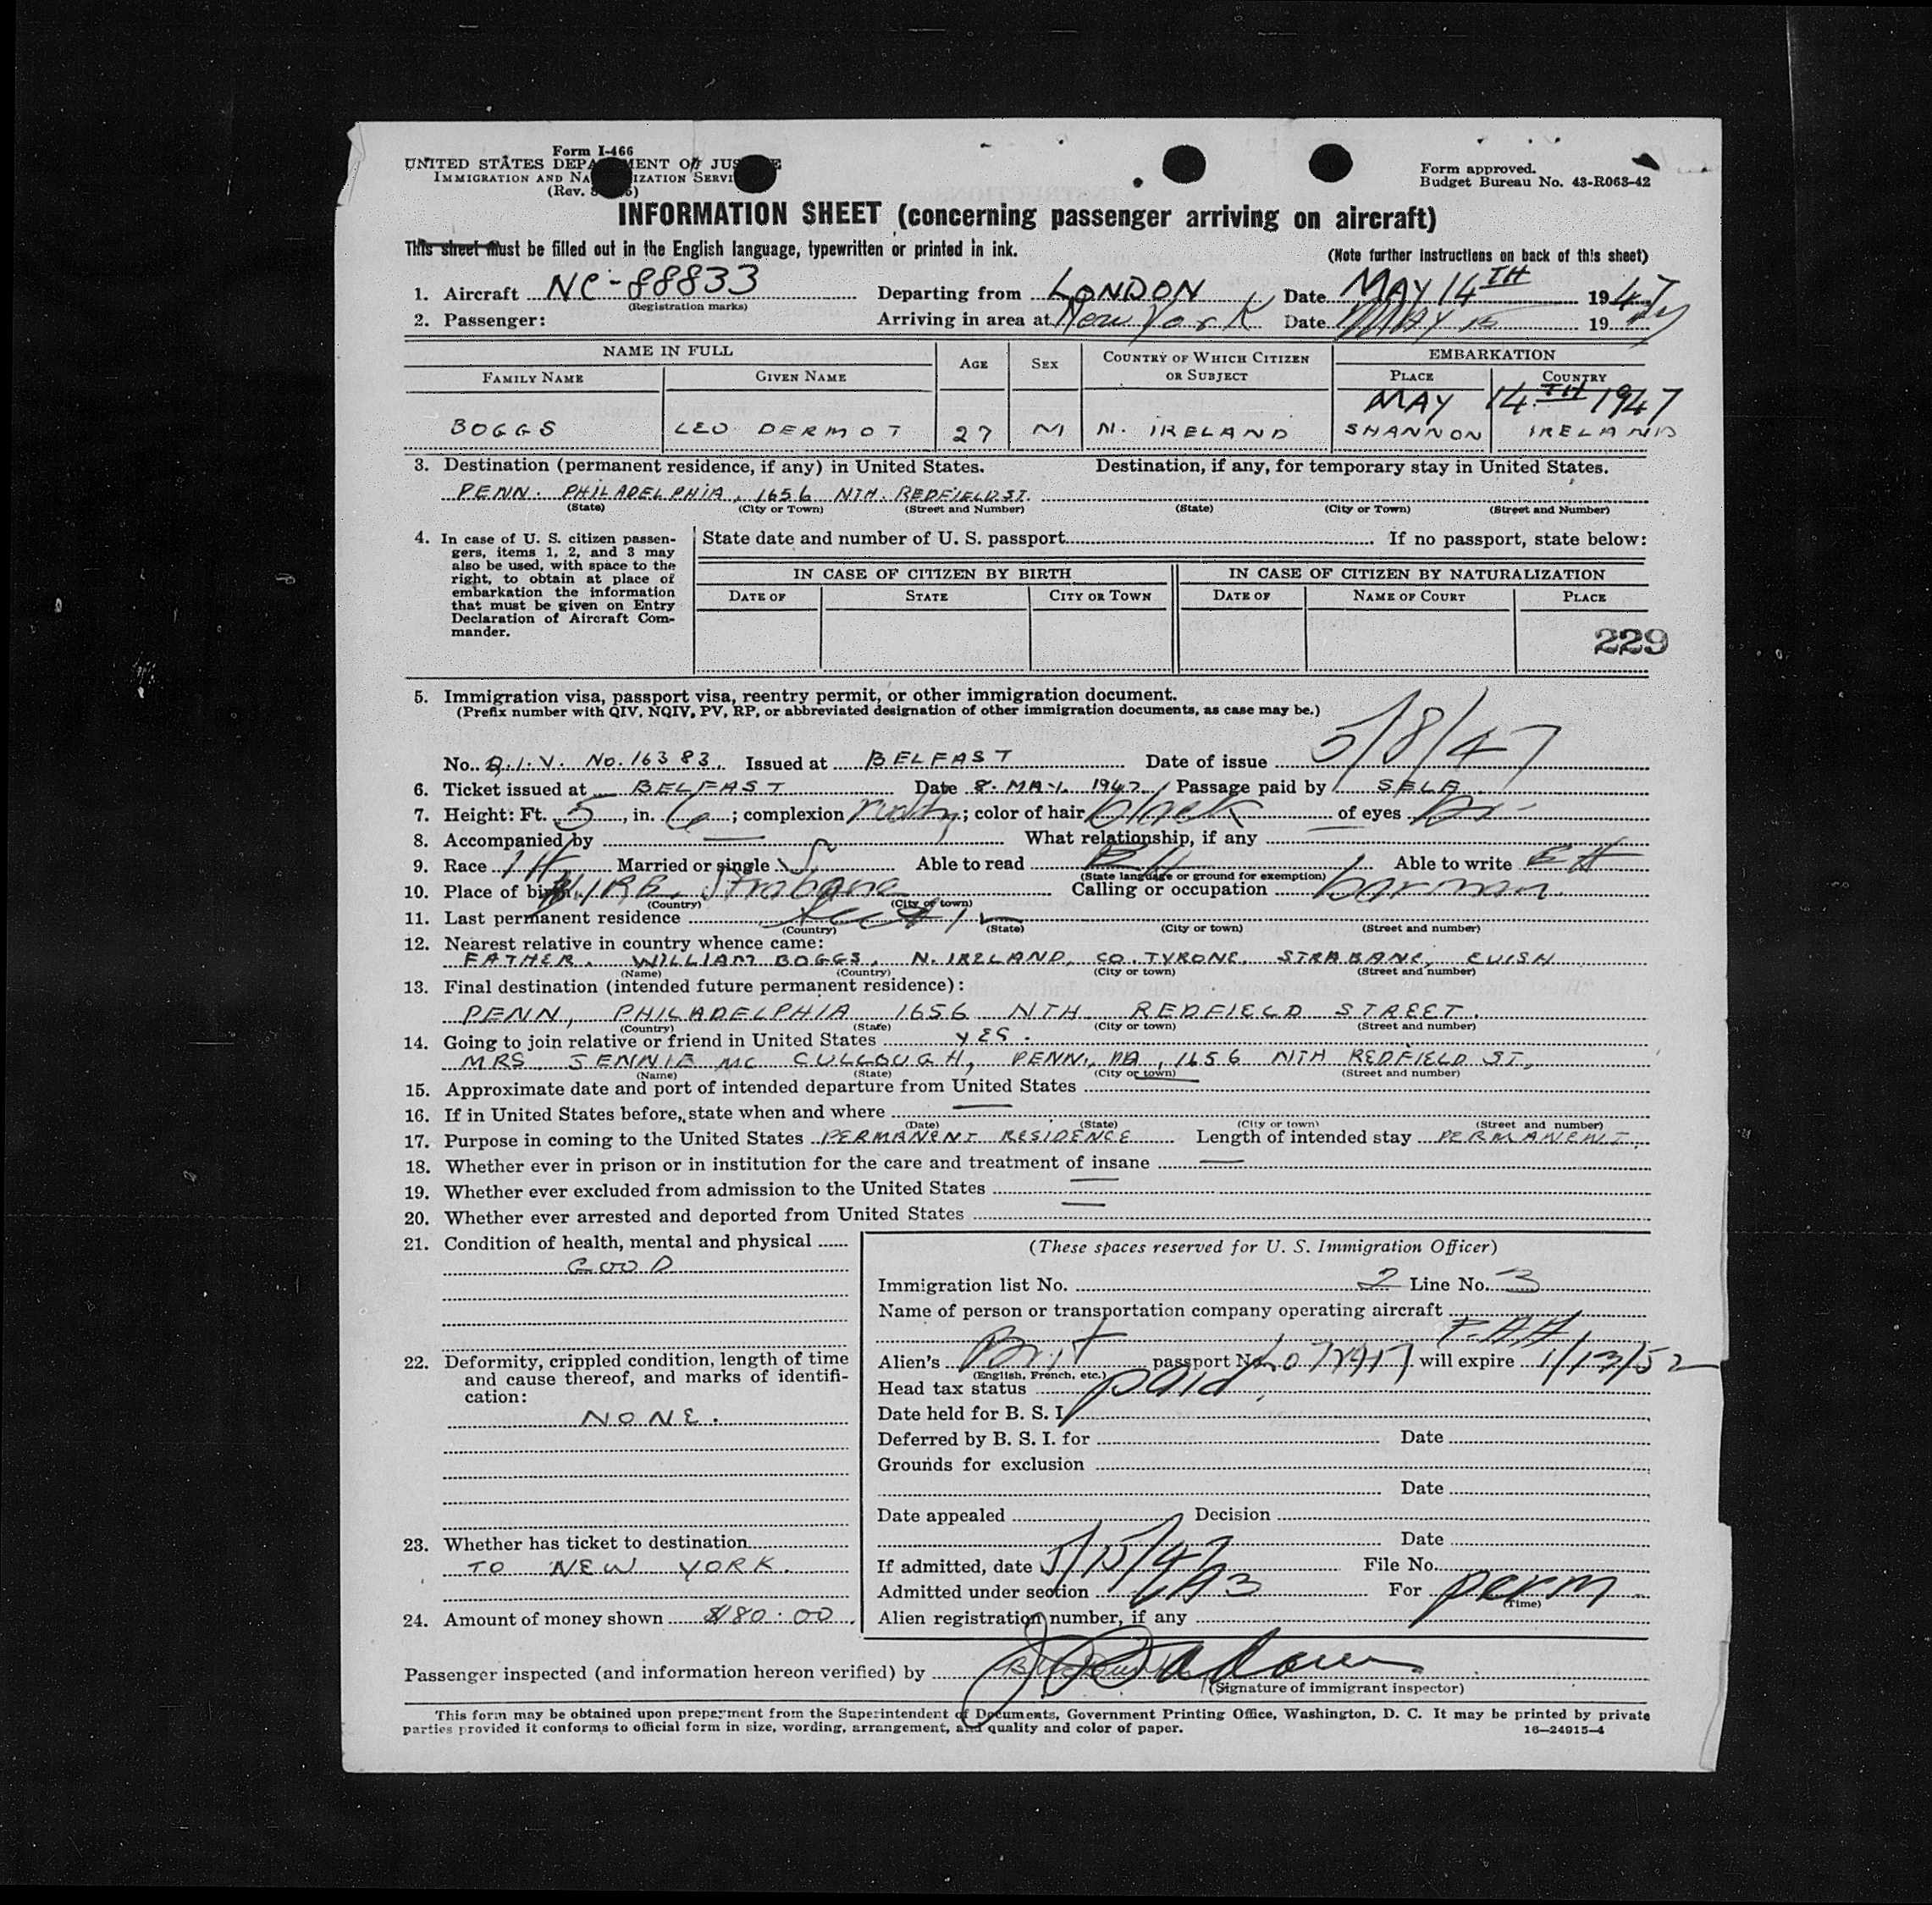 Form I-466
UNITED STATES DEPA MENT OF JUS E
IMMIGRATION AND NA IZATION SERVI
(Rev. 5)
Form approved.
Budget Bureau No. 43-R063-42
INFORMATION SHEET (concerning passenger arriving on aircraft)
This sheet must be filled out in the English language, typewritten or printed in ink.
(Note further instructions on back of this sheet)
1. Aircraft NC-88833 Departing from LONDON Date MAY 14TH 1947
(Registration marks)
2. Passenger: Arriving in area at New York Date MAY 15 1947
NAME IN FULL AGE SEX COUNTRY OF WHICH CITIZEN OR SUBJECT EMBARKATION
FAMILY NAME GIVEN NAME PLACE COUNTRY
MAY 14TH 1947
BOGGS LEO DERMOT 27 M N. IRELAND SHANNON IRELAND
3. Destination (permanent residence, if any) in United States. Destination, if any, for temporary stay in United States.
PENN. PHILADELPHIA, 1656 NTH. REDFIELD ST.
(State) (City or Town) (Street and Number) (State) (City or Town) (Street and Number)
4. In case of U. S. citizen passen-
gers, items 1, 2, and 3 may
also be used, with space to the
right, to obtain at place of
embarkation the information
that must be given on Entry
Declaration of Aircraft Com-
mander.
State date and number of U. S. passport If no passport, state below:
IN CASE OF CITIZEN BY BIRTH IN CASE OF CITIZEN BY NATURALIZATION
DATE OF STATE CITY OR TOWN DATE OF NAME OF COURT PLACE
229
5. Immigration visa, passport visa, reentry permit, or other immigration document.
(Prefix number with QIV, NQIV, PV, RP, or abbreviated designation of other immigration documents, as case may be.)
No. Q.I.V. No. 16383. Issued at BELFAST Date of issue 5/8/47
6. Ticket issued at BELFAST Date 8. MAY. 1947 Passage paid by SELF
7. Height: Ft. 5, in. 6; complexion ruddy; color of hair black of eyes br-
8. Accompanied by — What relationship, if any —
9. Race IH Married or single S Able to read EH Able to write EH
(State language or ground for exemption)
10. Place of birth IRE, Strabane Calling or occupation barman
(Country) (City or town)
11. Last permanent residence
(Country) (State) (City or town) (Street and number)
12. Nearest relative in country whence came:
FATHER. WILLIAM BOGGS. N. IRELAND, CO. TYRONE, STRABANE, EVISH
(Name) (Country) (City or town) (Street and number)
13. Final destination (intended future permanent residence):
PENN, PHILADELPHIA 1656 NTH REDFIELD STREET.
(Country) (State) (City or town) (Street and number)
14. Going to join relative or friend in United States YES.
MRS. JENNIE MC CULLOUGH, PENN, PA, 1656 NTH REDFIELD ST.,
(Name) (State) (City or town) (Street and number)
15. Approximate date and port of intended departure from United States —
16. If in United States before, state when and where —
(Date) (State) (City or town) (Street and number)
17. Purpose in coming to the United States PERMANENT RESIDENCE Length of intended stay PERMANENT.
18. Whether ever in prison or in institution for the care and treatment of insane —
19. Whether ever excluded from admission to the United States —
20. Whether ever arrested and deported from United States —
21. Condition of health, mental and physical
GOOD
22. Deformity, crippled condition, length of time
and cause thereof, and marks of identifi-
cation:
NONE.
23. Whether has ticket to destination
TO NEW YORK.
24. Amount of money shown $180:00.
(These spaces reserved for U. S. Immigration Officer)
Immigration list No. 2 Line No. 3
Name of person or transportation company operating aircraft
P.AA.
Alien's Brit passport No. will expire 1/13/52
(English, French, etc.)
Head tax status paid
Date held for B. S. I.
Deferred by B. S. I. for Date
Grounds for exclusion
Date
Date appealed Decision
Date
If admitted, date 5/15/47 File No.
Admitted under section 6A3 For perm
(Time)
Alien registration number, if any
Passenger inspected (and information hereon verified) by
(Signature of immigrant inspector)
This form may be obtained upon prepayment from the Superintendent of Documents, Government Printing Office, Washington, D. C. It may be printed by private
parties provided it conforms to official form in size, wording, arrangement, and quality and color of paper. 16—24915-4